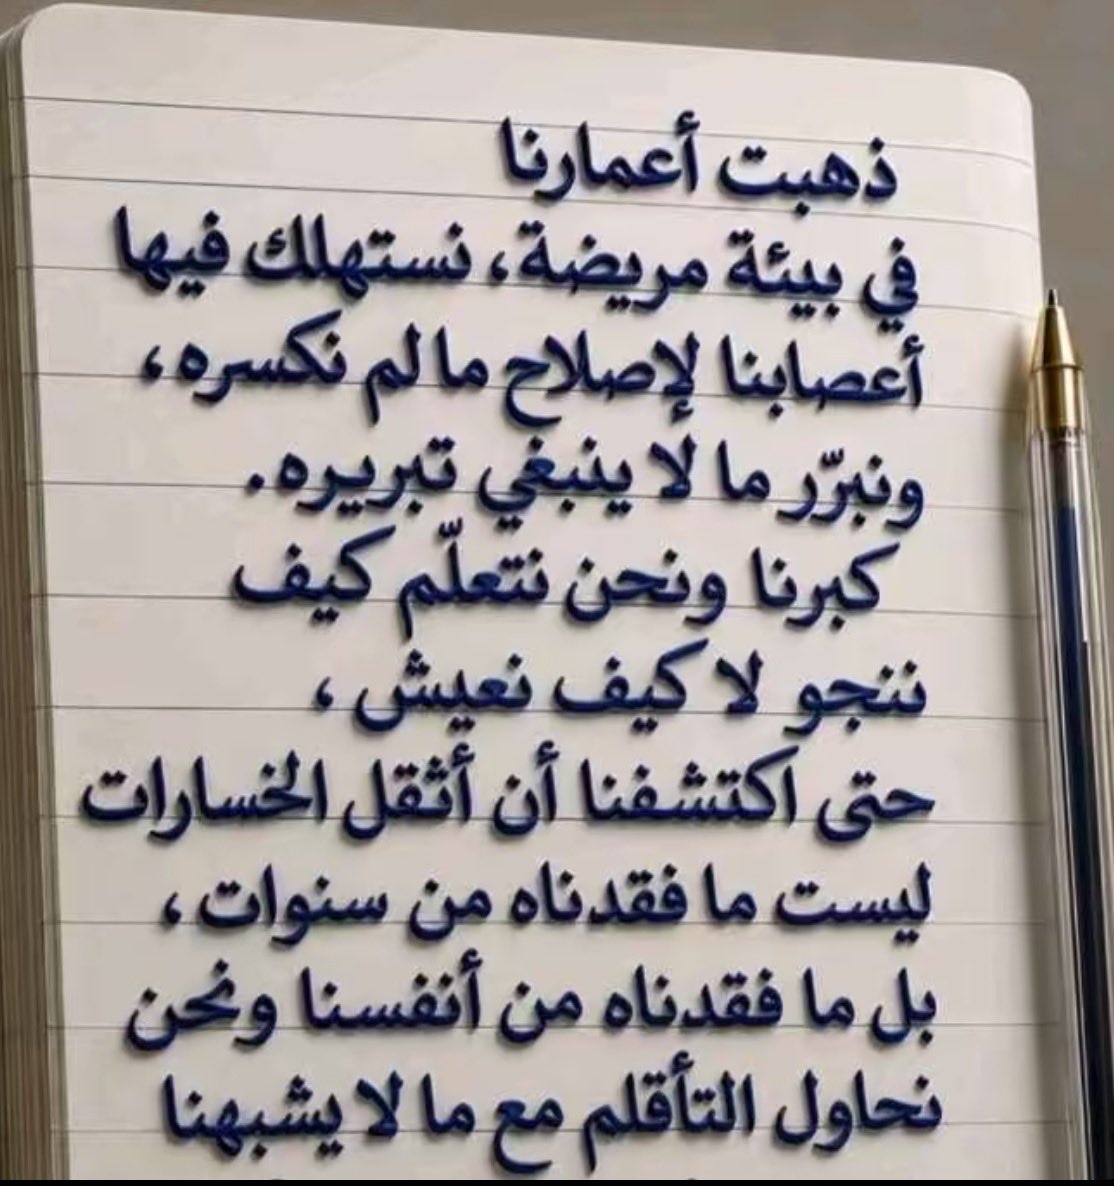 ذهبت أعمارنا
في بيئة مريضة، نستهلك فيها
أعصابنا لإصلاح ما لم نكسره،
ونبرّر ما لا ينبغي تبريره.
كبرنا ونحن نتعلّم كيف
ننجو لا كيف نعيش ،
حتى اكتشفنا أن أثقل الخسارات
ليست ما فقدناه من سنوات ،
بل ما فقدناه من أنفسنا ونحن
نحاول التأقلم مع ما لا يشبهنا